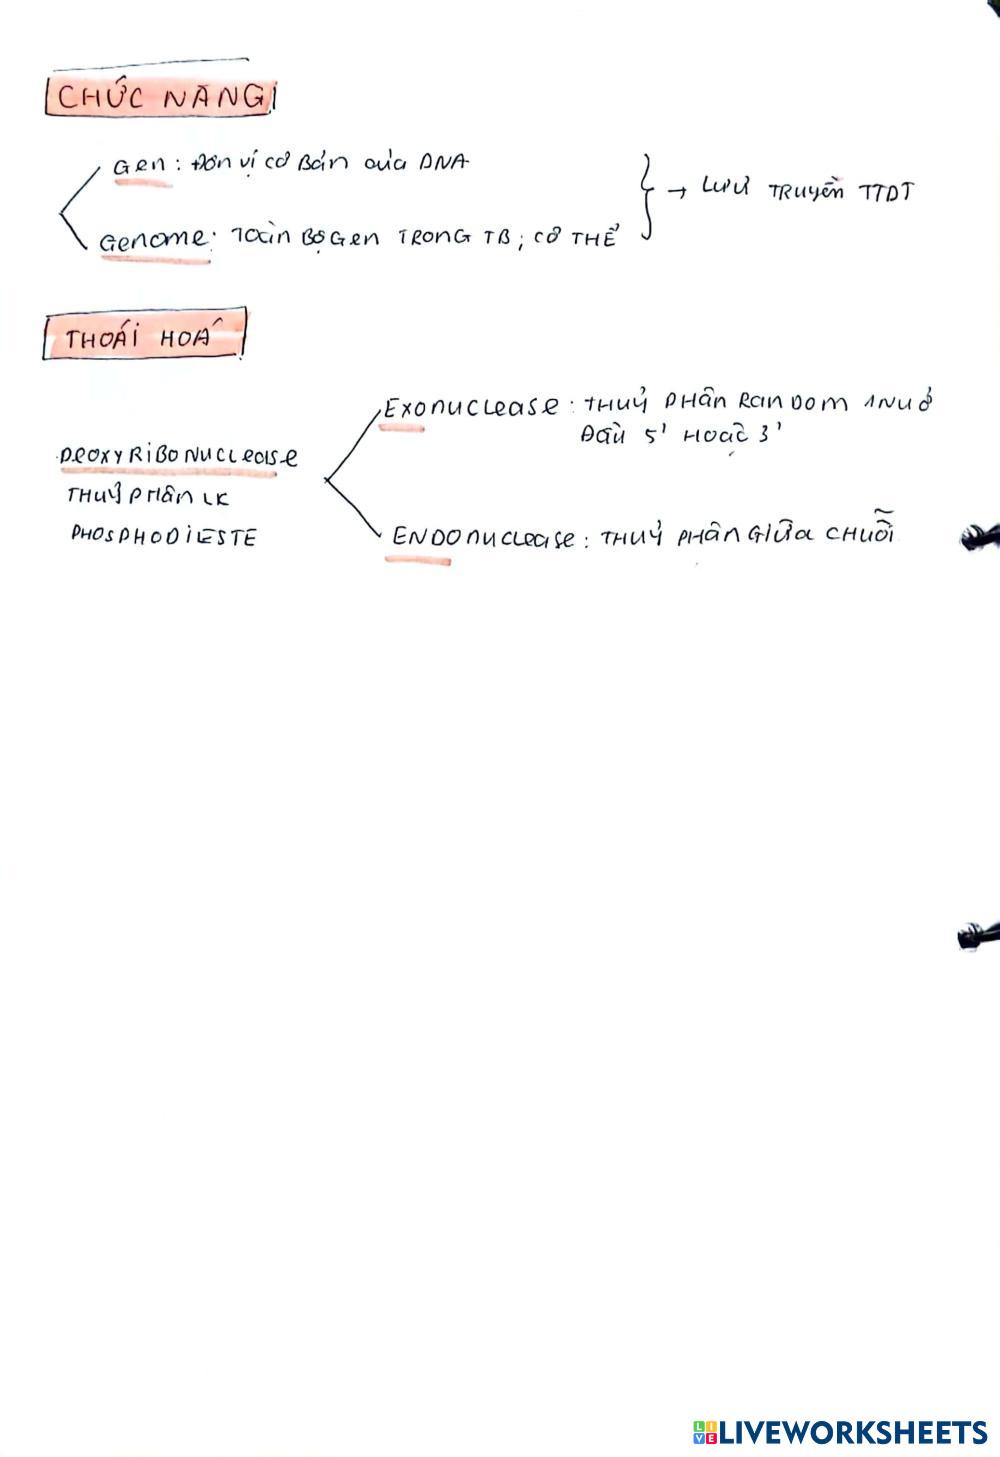 CHỨC NĂNG
Gen: Đơn vị cơ bản của DNA
Genome: Toàn bộ gen trong TB; cơ thể
→ Lưu truyền TTDT
THOÁI HOÁ
Exonuclease: Thuỷ phân random 1 nu ở
đầu 5' hoặc 3'
Deoxyribonuclease
Thuỷ phân LK
phosphodieste
Endonuclease: Thuỷ phân giữa chuỗi
LIVEWORKSHEETS